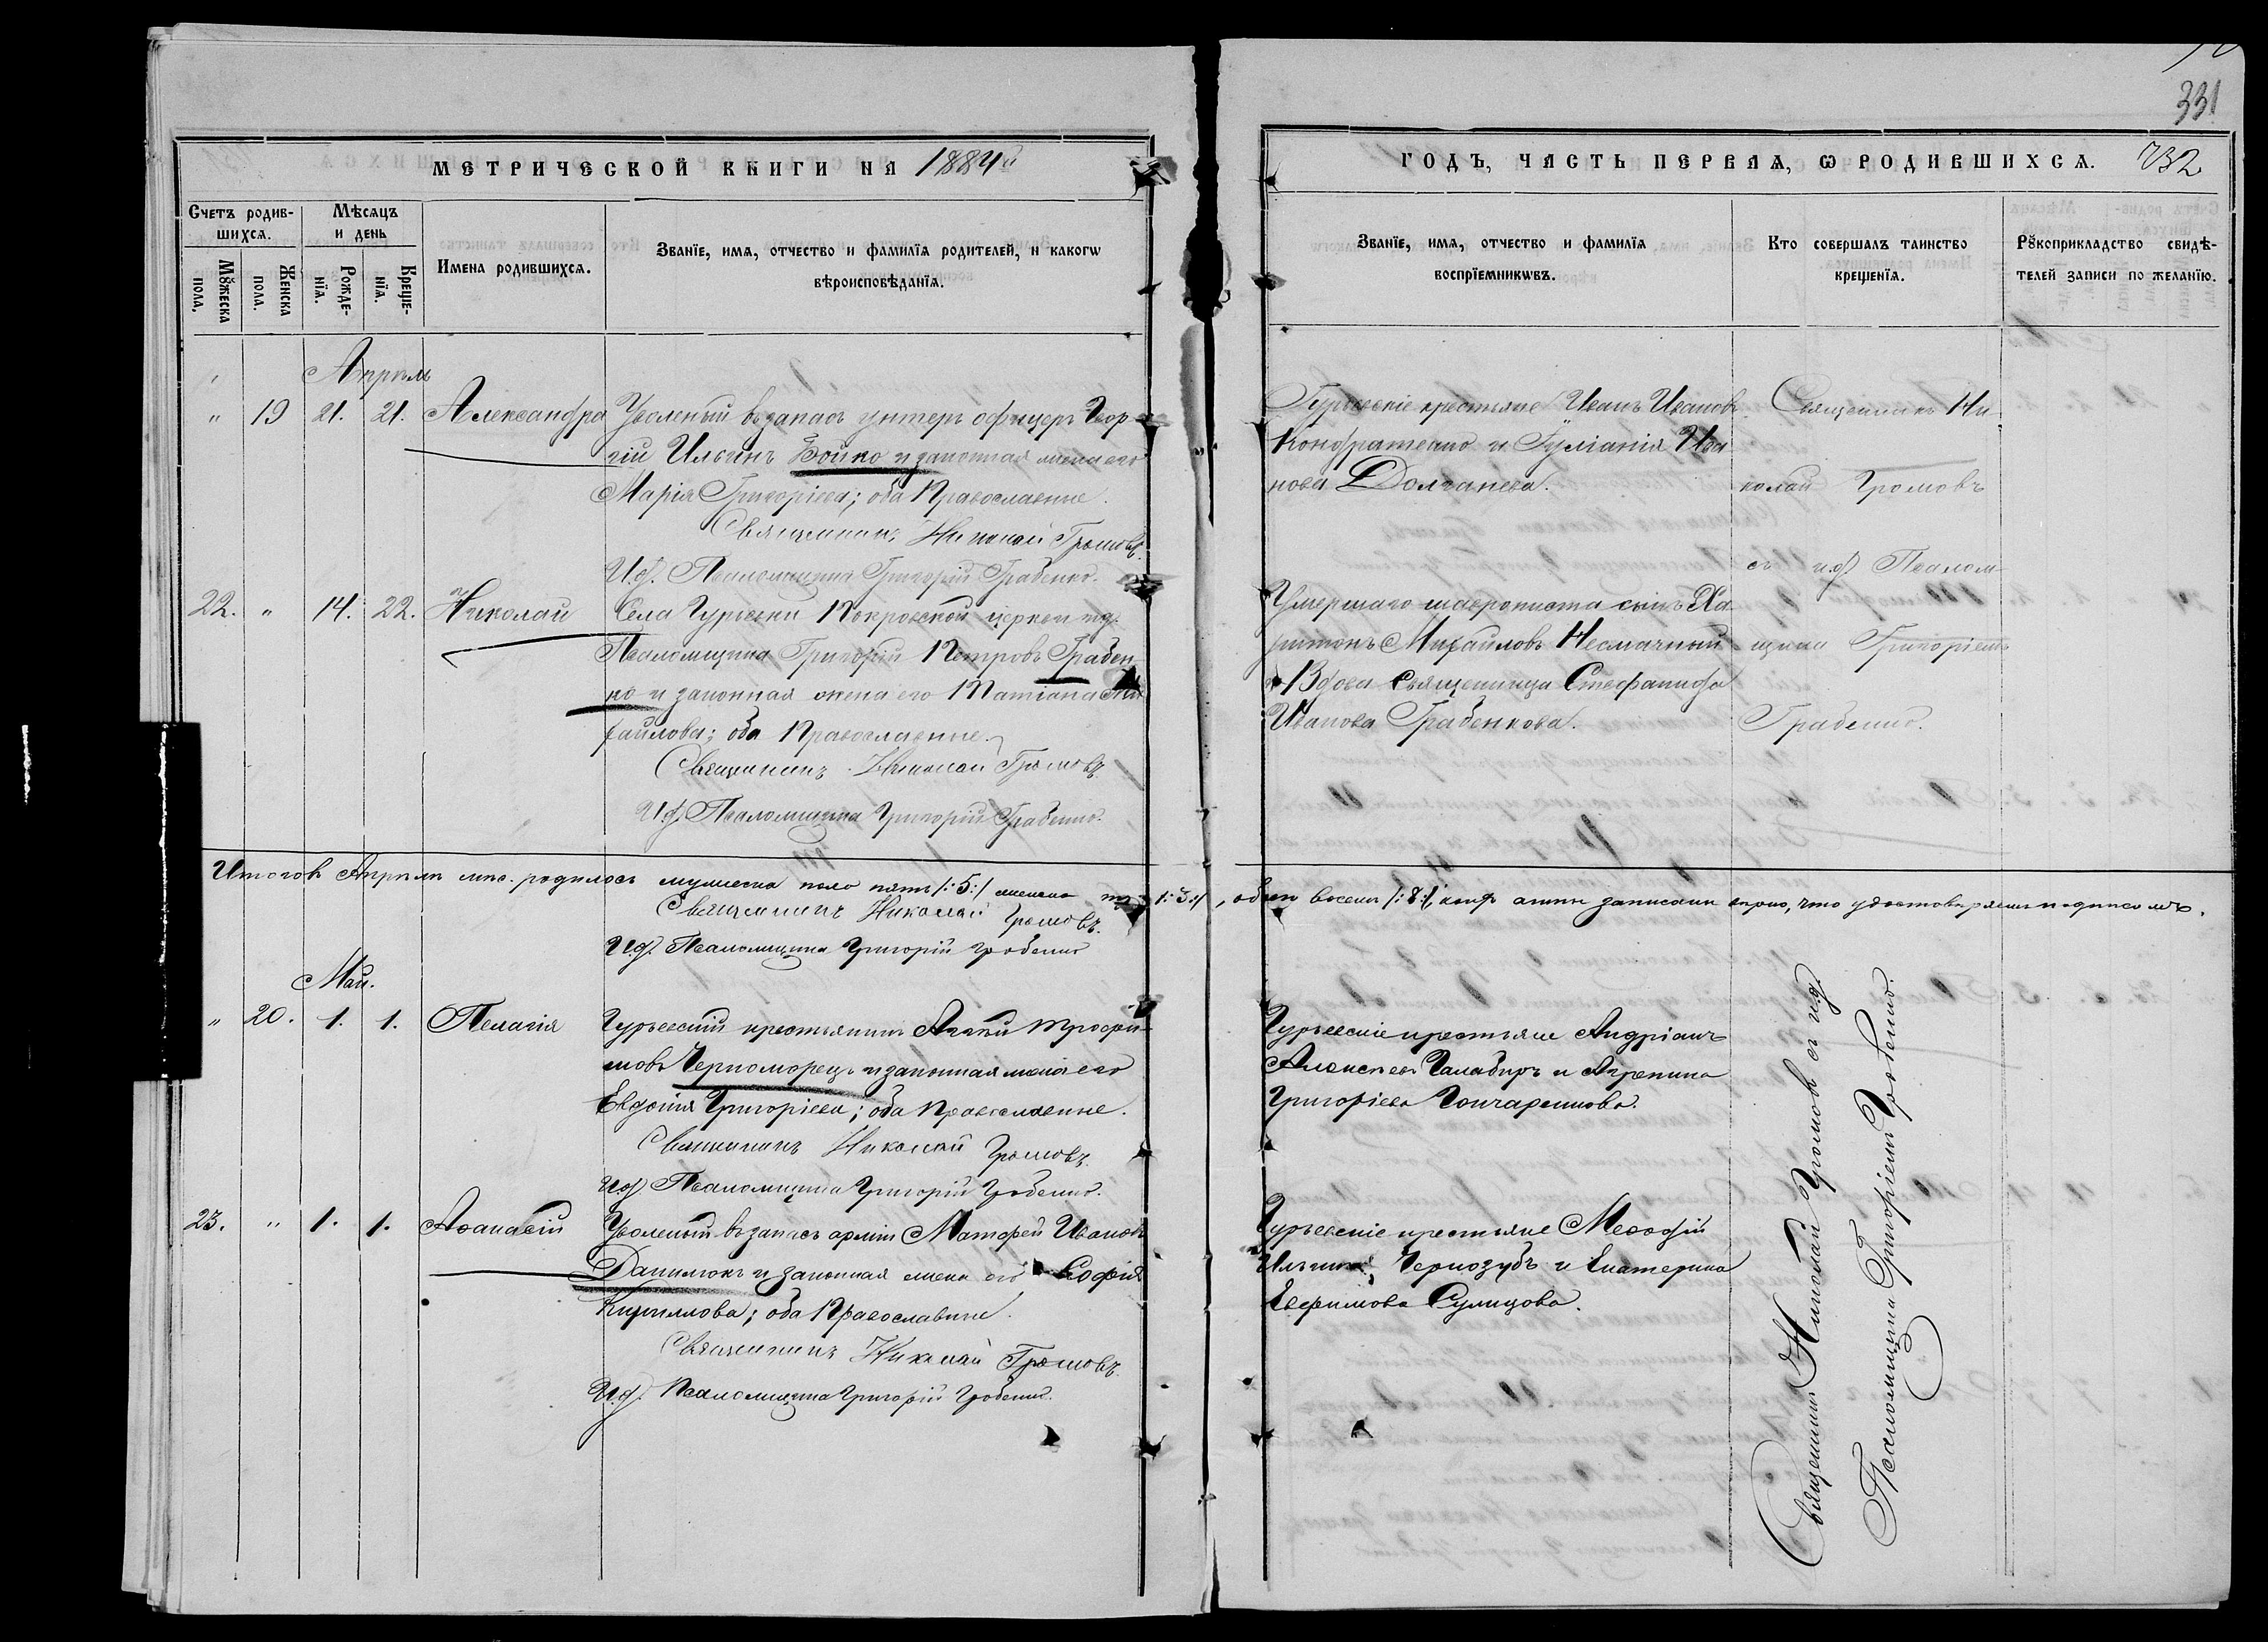 331
МЕТРИЧЕСКОЙ КНИГИ НА 1884й
ГОДЪ, ЧАСТЬ ПЕРВАЯ, Ѡ РОДИВШИХСЯ. 732
Счетъ родив-
шихся.
Мѣсяцъ
и день
Мꙋжеска
пола.
Женска
пола.
Рожде-
нїя.
Креще-
нїя.
Имена родившихся.
Званїе, имя, отчество и фамилїя родителей, и какогѡ
вѣроисповѣданїя.
Званїе, имя, отчество и фамилїя
воспрїемникѡвъ.
Кто совершалъ таинство
крещенїя.
Рꙋкоприкладство свидѣ-
телей записи по желанїю.
Апрѣль
" 19 21. 21. Александра
Уволеный въ запасъ унтеръ офицеръ Геор-
гій Ильинъ Бойко и законная жена его
Марія Григоріева; оба Православные.
Священникъ Николай Громовъ.
И.д. Псаломщика Григорій Грабенко.
Гурьевскіе крестьяне Иванъ Ивановъ
Кондратенко и Іуліанія Ива
нова Долганева.
Священникъ Ни
колай Громовъ
съ и.д. Псалом
щика Григоріемъ
Грабенко.
22. " 14. 22. Николай
Села Гурьевки Покровской церкви и.д.
Псаломщика Григорій Петровъ Грабен
ко и законная жена его Татіана Ми
хайлова; оба Православные.
Священникъ Николай Громовъ
И.д. Псаломщика Григорій Грабенко.
Умершаго сынъ Ха
ритонъ Михайловъ Несмачный
и Вдова Священица Стефанида
Иванова Грабенкова.
Итого въ Апрѣлѣ мѣс. родилось мужеска пола пять /:5:/ женска три /:3:/, обоего восемь /:8:/, записаны вѣрно, что удостовѣряемъ подписомъ.
Священникъ Николай Громовъ.
И.д. Псаломщика Григорій Грабенко
Май.
" 20. 1. 1. Пелагія
Гурьевскій крестьянинъ Трофи-
мовъ Черноморецъ и законная жена его
Евдокія Григоріева; оба Православные.
Священникъ Николай Громовъ.
И.д. Псаломщика Григорій Грабенко.
Гурьевскіе крестьяне Андріанъ
Алексѣевъ Галабиръ и Агрепина
Григоріева Гончаренкова.
23. " 1. 1. Аѳанасій
Уволеный въ запасъ арміи Матфей Ивановъ
Данилюкъ и законная жена его Софія
Кириллова; оба Православные.
Священникъ Николай Громовъ.
И.д. Псаломщика Григорій Грабенко.
Гурьевскіе крестьяне Меѳодій
Ильинъ Чернозубъ и Екатерина
Евфимова Сулицова.
Священникъ Николай Громовъ съ и.д.
Псаломщика Григоріемъ Грабенко.